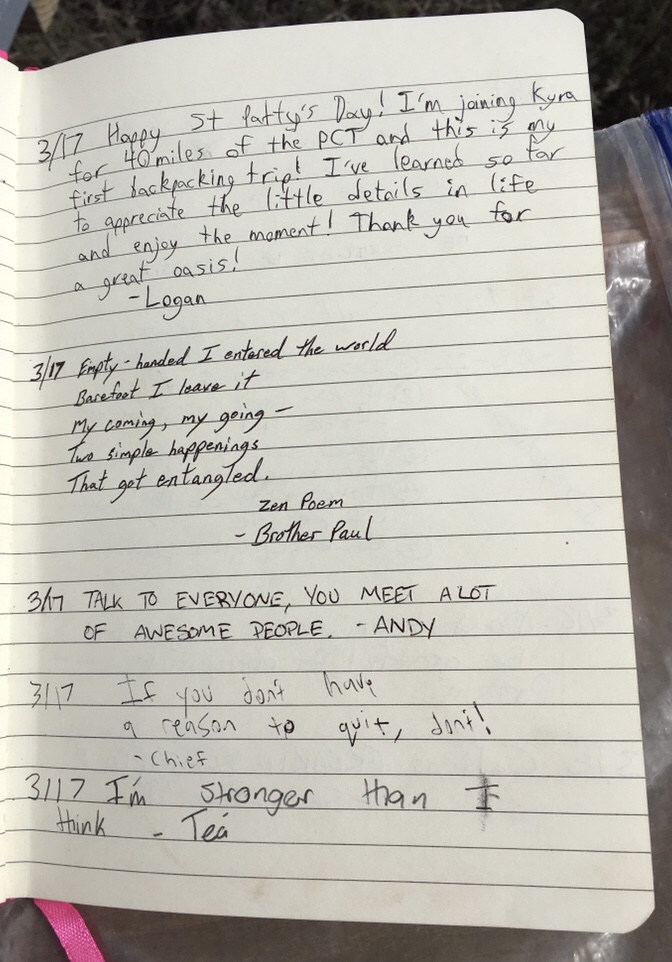 3/17 Happy St Patty's Day! I'm joining Kyra
for 40miles of the PCT and this is my
first backpacking trip! I've learned so far
to appreciate the little details in life
and enjoy the moment! Thank you for
a great oasis!
-Logan
3/17 Empty-handed I entered the world
Barefoot I leave it
My coming, my going —
Two simple happenings
That got entangled.
Zen Poem
- Brother Paul
3/17 TALK TO EVERYONE, YOU MEET A LOT
OF AWESOME PEOPLE. - ANDY
3/17 If you don't have
a reason to quit, don't!
- Chief
3/17 I'm stronger than I
think - Teá